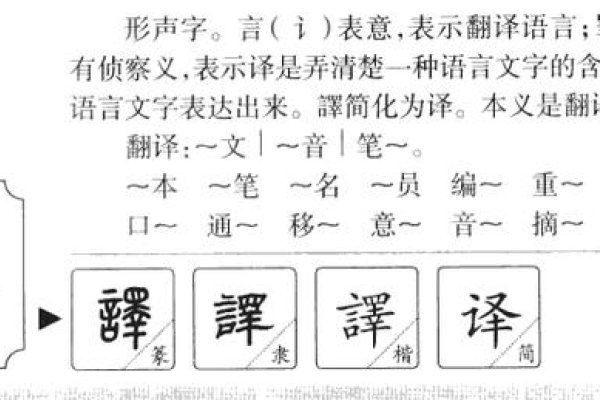 形声字。言(讠)表意,表示翻译语言;
有侦察义,表示译是弄清楚一种语言文字的含
语言文字表达出来。譯简化为译。本义是翻译
翻译:~文|~音|笔~。
~本 ~笔 ~名 ~员 编~ 重~
口~ 通~ 移~ 意~ 音~ 摘~
譯 譯 譯 译
篆 隶 楷 简